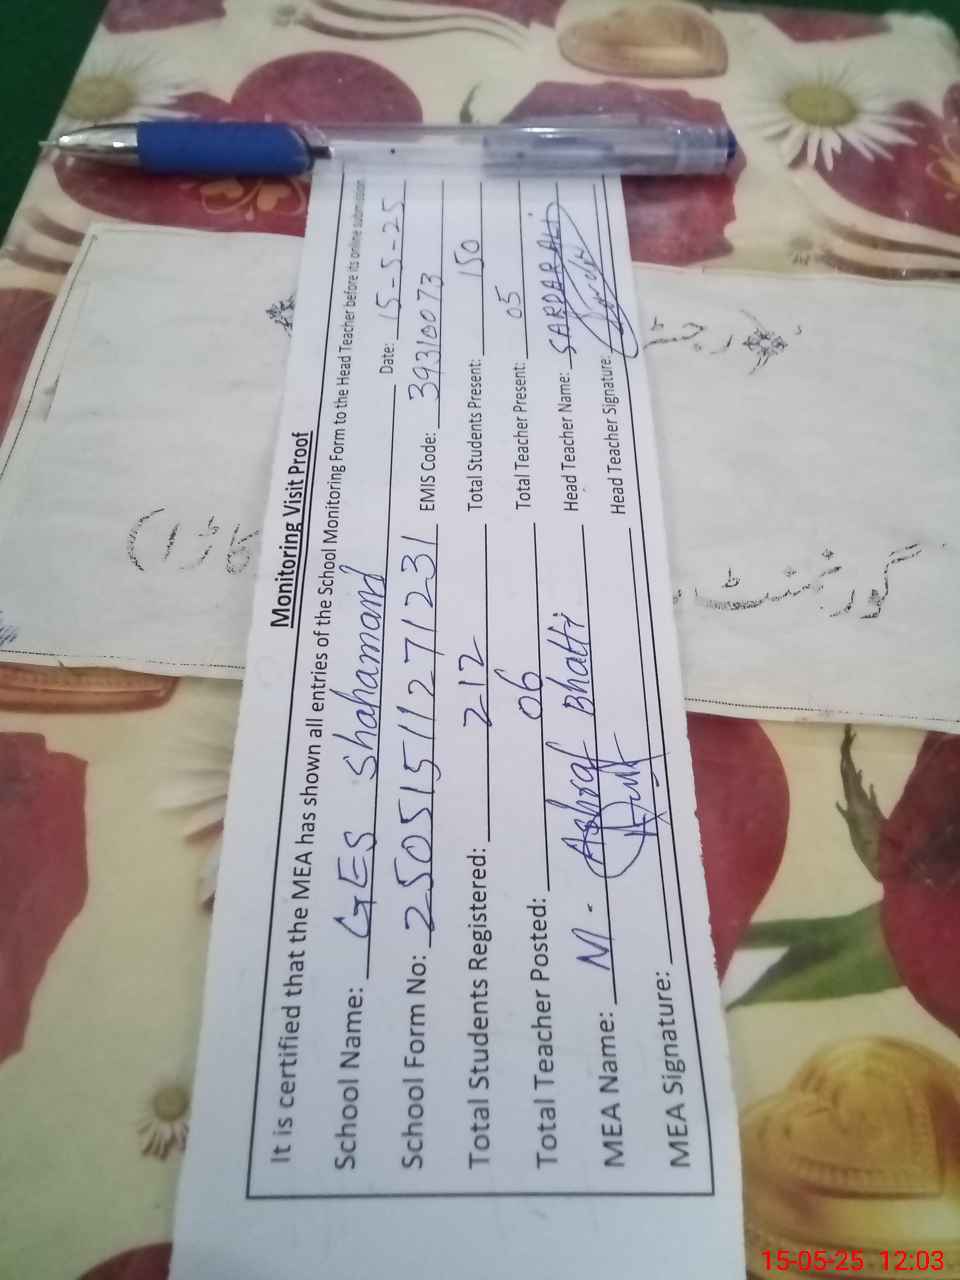 Monitoring Visit Proof
It is certified that the MEA has shown all entries of the School Monitoring Form to the Head Teacher before its online submission
School Name: GES Shahamand Date: 15-5-25
School Form No: 25051511271231 EMIS Code: 39310073
Total Students Registered: 212 Total Students Present: 150
Total Teacher Posted: 06 Total Teacher Present: 05
MEA Name: M. Ashraf Bhatti Head Teacher Name: SARDAR ALI
MEA Signature: Head Teacher Signature:
گورنمنٹ
15-05-25 12:03